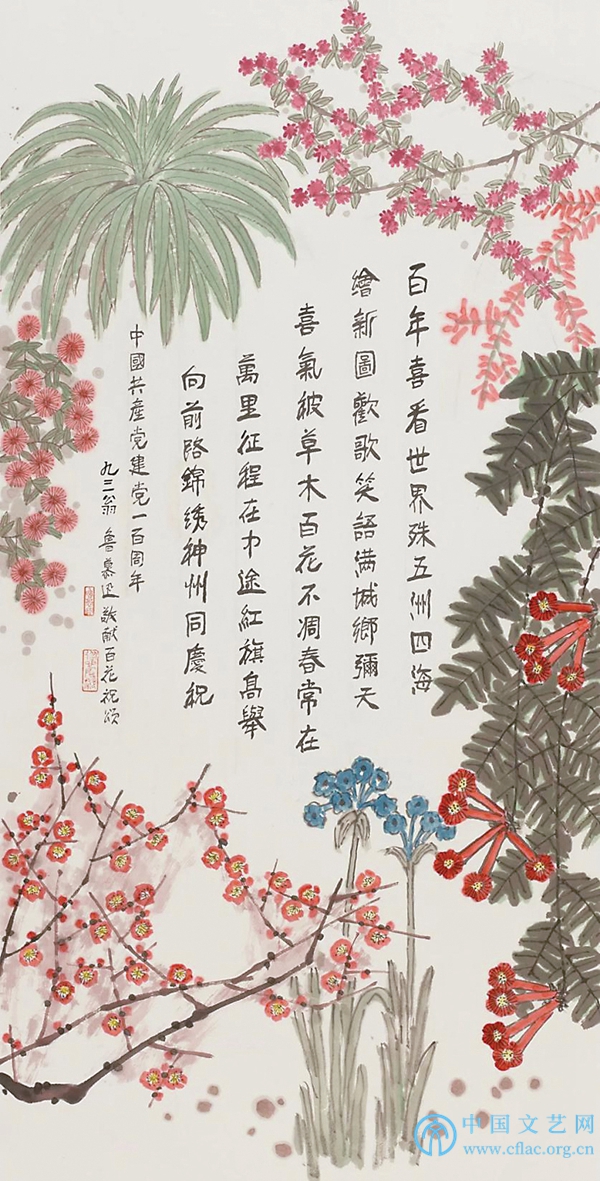 百年喜看世界殊五洲四海
繪新圖歡歌笑語满城鄉彌天
喜氣披草木百花不凋春常在
萬里征程在中途紅旗高舉
向前路錦绣神州同慶祝
中國共產党建党一百周年
九三翁 鲁慕迅敬献百花祝颂
中国文艺网
www.cflac.org.cn